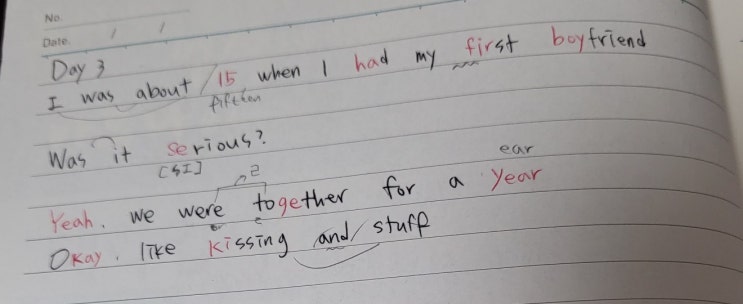 No.
Date. / /
Day 3
I was about / 15 when I had my first boyfriend
fifthen
Was it serious?
[sI]
ear
Yeah. we were together for a year
Okay. like kissing and / stuff